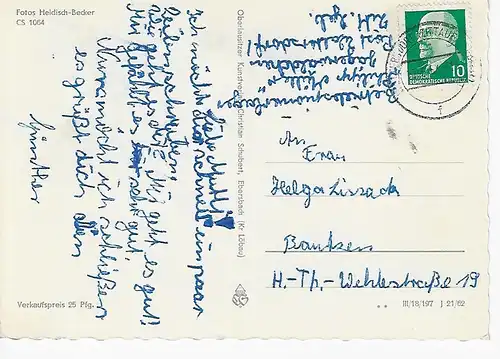 Fotos Heldisch-Becker
CS 1064
Liebe Mutti!
Ich möchte dir schnell ein paar
Zeilen schreiben.
Wie geht es dir? Mir geht es gut!
Mir gefällt es sehr gut.
Nun möcht ich schließen
es grüßt dich dein
Günther
Verkaufspreis 25 Pfg.
Oberlausitzer Kunstverlag Christian Schubert, Ebersbach (Kr Löbau)
Betriebspionierlager
Post
DEUTSCHE
DEMOKRATISCHE REPUBLIK
10
An
Frau
Helga Lissack
Bautzen
H.-Th.-Wehlestraße 19
III/18/197 J 21/62